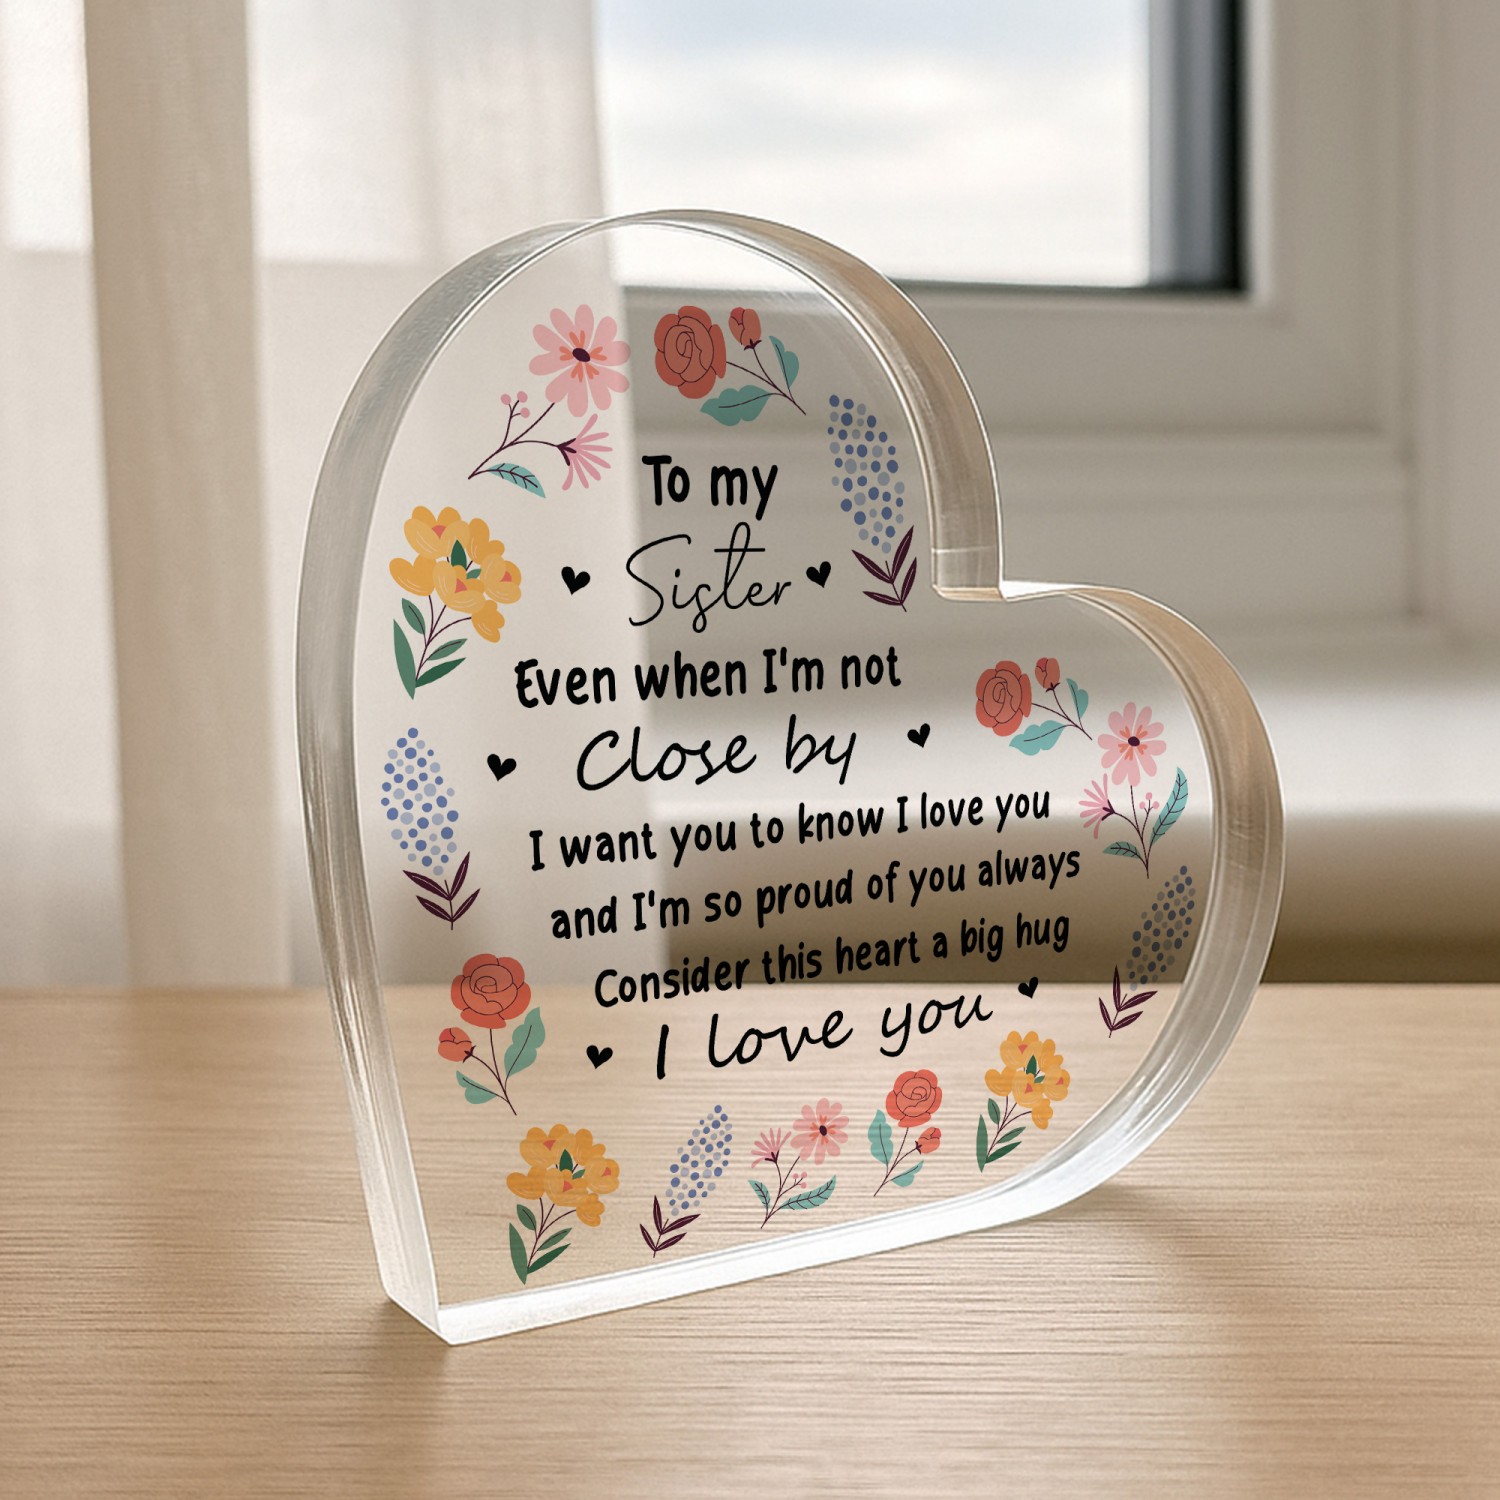 To my
Sister
Even when I'm not
Close by
I want you to know I love you
and I'm so proud of you always
Consider this heart a big hug
I love you